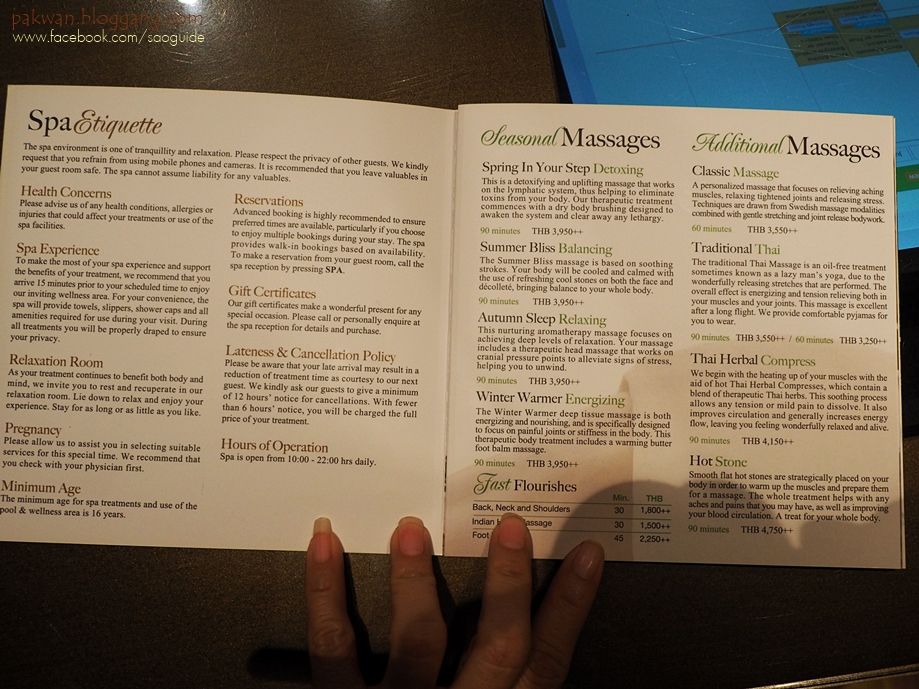 pakwan.bloggang.com
www.facebook.com/saoguide
Spa Etiquette
The spa environment is one of tranquillity and relaxation. Please respect the privacy of other guests. We kindly
request that you refrain from using mobile phones and cameras. It is recommended that you leave valuables in
your guest room safe. The spa cannot assume liability for any valuables.
Health Concerns
Please advise us of any health conditions, allergies or
injuries that could affect your treatments or use of the
spa facilities.
Spa Experience
To make the most of your spa experience and support
the benefits of your treatment, we recommend that you
arrive 15 minutes prior to your scheduled time to enjoy
our inviting wellness area. For your convenience, the
spa will provide towels, slippers, shower caps and all
amenities required for use during your visit. During
all treatments you will be properly draped to ensure
your privacy.
Relaxation Room
As your treatment continues to benefit both body and
mind, we invite you to rest and recuperate in our
relaxation room. Lie down to relax and enjoy your
experience. Stay for as long or as little as you like.
Pregnancy
Please allow us to assist you in selecting suitable
services for this special time. We recommend that
you check with your physician first.
Minimum Age
The minimum age for spa treatments and use of the
pool & wellness area is 16 years.
Reservations
Advanced booking is highly recommended to ensure
preferred times are available, particularly if you choose
to enjoy multiple bookings during your stay. The spa
provides walk-in bookings based on availability.
To make a reservation from your guest room, call the
spa reception by pressing SPA.
Gift Certificates
Our gift certificates make a wonderful present for any
special occasion. Please call or personally enquire at
the spa reception for details and purchase.
Lateness & Cancellation Policy
Please be aware that your late arrival may result in a
reduction of treatment time as courtesy to our next
guest. We kindly ask our guests to give a minimum
of 12 hours' notice for cancellations. With fewer
than 6 hours' notice, you will be charged the full
price of your treatment.
Hours of Operation
Spa is open from 10:00 - 22:00 hrs daily.
Seasonal Massages
Spring In Your Step Detoxing
This is a detoxifying and uplifting massage that works
on the lymphatic system, thus helping to eliminate
toxins from your body. Our therapeutic treatment
commences with a dry body brushing designed to
awaken the system and clear away any lethargy.
90 minutes THB 3,950++
Summer Bliss Balancing
The Summer Bliss massage is based on soothing
strokes. Your body will be cooled and calmed with
the use of refreshing cool stones on both the face and
décolleté, bringing balance to your whole body.
90 minutes THB 3,950++
Autumn Sleep Relaxing
This nurturing aromatherapy massage focuses on
achieving deep levels of relaxation. Your massage
includes a therapeutic head massage that works on
cranial pressure points to alleviate signs of stress,
helping you to unwind.
90 minutes THB 3,950++
Winter Warmer Energizing
The Winter Warmer deep tissue massage is both
energizing and nourishing, and is specifically designed
to focus on painful joints or stiffness in the body. This
therapeutic body treatment includes a warming butter
foot balm massage.
90 minutes THB 3,950++
Fast Flourishes
Min. THB
Back, Neck and Shoulders 30 1,800++
Indian Massage 30 1,500++
Foot 45 2,250++
Additional Massages
Classic Massage
A personalized massage that focuses on relieving aching
muscles, relaxing tightened joints and releasing stress.
Techniques are drawn from Swedish massage modalities
combined with gentle stretching and joint release bodywork.
60 minutes THB 3,550++
Traditional Thai
The traditional Thai Massage is an oil-free treatment
sometimes known as a lazy man's yoga, due to the
wonderfully releasing stretches that are performed. The
overall effect is energizing and tension relieving both in
your muscles and your joints. This massage is excellent
after a long flight. We provide comfortable pyjamas for
you to wear.
90 minutes THB 3,550++ / 60 minutes THB 3,250++
Thai Herbal Compress
We begin with the heating up of your muscles with the
aid of hot Thai Herbal Compresses, which contain a
blend of therapeutic Thai herbs. This soothing process
allows any tension or mild pain to dissolve. It also
improves circulation and generally increases energy
flow, leaving you feeling wonderfully relaxed and alive.
90 minutes THB 4,150++
Hot Stone
Smooth flat hot stones are strategically placed on your
body in order to warm up the muscles and prepare them
for a massage. The whole treatment helps with any
aches and pains that you may have, as well as improving
your blood circulation. A treat for your whole body.
90 minutes THB 4,750++